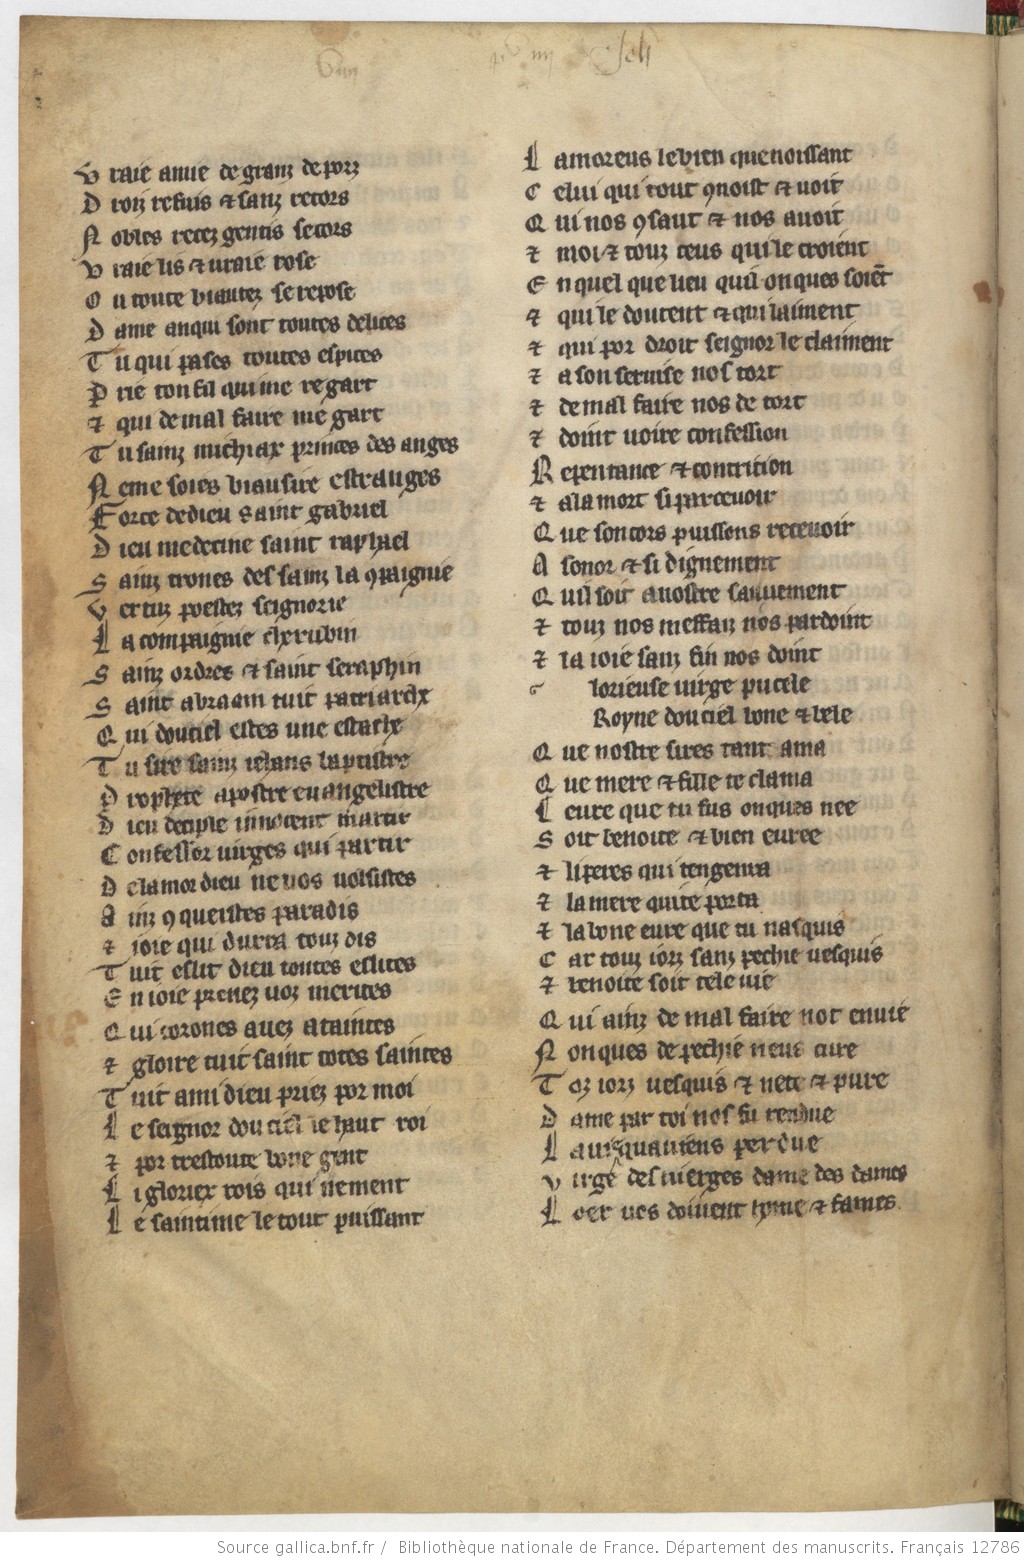 V raie amie de granz deporz
D roiz refuis ⁊ sanz recors
N obles recez gentis secors
V raie lis ⁊ uraie rose
O u toute biautez se repose
D ame an qui sont toutes delices
T u qui pases toutes espices
P rie ton fil qui me regart
⁊ qui de mal faire me gart
T u sainz michiax princes des anges
N e me soies biau sire estranges
F orce de dieu saint gabriel
D ieu medecine saint raphael
S ainz trones des sainz la ꝯpaignie
V ertuz poestez seignorie
L a compaignie cherubin
S ainz ordres ⁊ saint seraphin
S aint abraam tuit patriarche
Q ui dou ciel estes une estache
T u sire sainz iehans baptistre
P rophete apostre euangelistre
D ieu deciple innocent martir
C onfessor uirges qui partir
D e lamor dieu ne uos uolsistes
A inz ꝯqueistes paradis
⁊ ioie qui durra touz dis
T uit eslit dieu toutes eslites
E n ioie prenez uoz merites
Q ui corones auez ataintes
⁊ gloire tuit saint totes saintes
T uit ami dieu priez por moi
L e seignor dou ciel le haut roi
⁊ por trestoute bone gent
L i gloriex rois qui ne ment
L e saintime le tout puissant
L amoreus le bien quenoissant
C elui qui tout ꝯnoist ⁊ uoit
Q ui nos ꝯsaut ⁊ nos auoit
⁊ moi ⁊ touz ceus qui le croient
E n quel que lieu quil onques soiēt
⁊ qui le doutent ⁊ qui laiment
⁊ qui por droit seignor le claiment
⁊ a son seruise nos tort
⁊ de mal faire nos detort
⁊ doint uoire confession
R epentance ⁊ contrition
⁊ a la mort si parceuoir
Q ue son cors puissons receuoir
A sonor ⁊ si dignement
Q uil soit a nostre sauuement
⁊ touz nos meffaiz nos pardoint
⁊ la ioie sanz fin nos doint
g lorieuse uirge pucele
Royne dou ciel bone ⁊ bele
Q ue nostre sires tant ama
Q ue mere ⁊ fille te clama
L eure que tu fus onques nee
S oit benoite ⁊ bien euree
⁊ li peres qui tengenra
⁊ la mere qui te porta
⁊ la bone eure que tu nasquis
C ar touz iorz sanz pechie uesquis
⁊ benoite soit tele uie
Q ui ainz de mal faire not enuie
N onques de pechie neus cure
T oz iorz uesquis ⁊ nete ⁊ pure
D ame par toi nos fu rendue
L a uis quauiens perdue
V irge des uierges dame des dames
L oer uos doiuent home ⁊ fames
Source gallica.bnf.fr / Bibliothèque nationale de France. Département des manuscrits. Français 12786